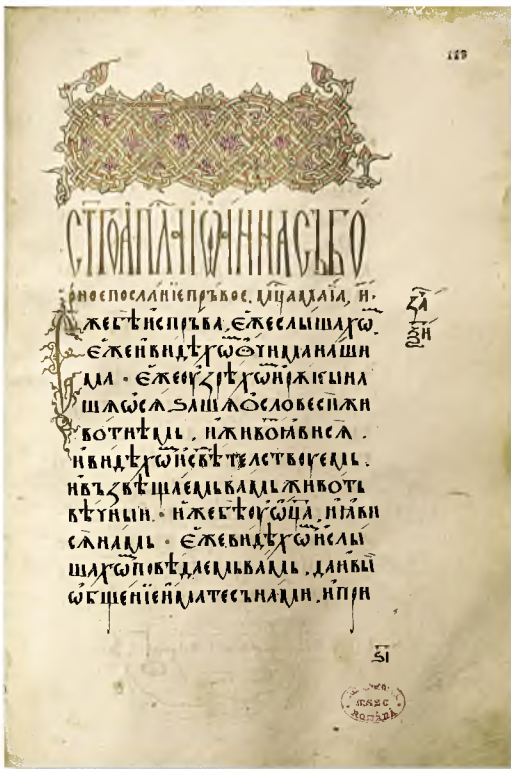 113
СТ҃ГО АПⷭ҇ЛА ІѠА́ННА СЪБО́
РНОЕ ПОСЛА́НЇЕ ПРЪ́ВОЕ. МЦ҃А МАЇА, И҃.
Е҆́же бѣ и҆спръ́ва, є҆́же слы́шахѡⷨ
є҆́же и҆ ви́дѣхѡⷨ ѻ҆чи́ма на́ши
ма · є҆́же ѹ҆зрѣ́хѡⷨ и҆ рѫкы̀ на
шѧ ѡ҆сѧ́ꙁашѧ ѻ҆ словесѝ жи
вотнѣ́мь . и҆ живо́ⷮ ꙗ҆ви́сѧ .
и҆ ви́дѣхѡⷨ и҆ свѣⷣ тельствꙋемь .
и҆ въꙁвѣща́емь ва́мь живо́ть
вѣ́чныи . и҆́же бѣ ѹ҆ ѡ҆ц҃а̀ . и҆ ꙗ҆ви
сѧ́ на́мь · є҆́же ви́дѣхѡⷨ и҆ слы́
шахѡⷨ повѣ́даемь ва́мь . да и҆ вы̀
ѡ҆бще́нїе и҆́мате съ на́ми . и҆ при
ꙁа҃
ѯи
ѕ҃і